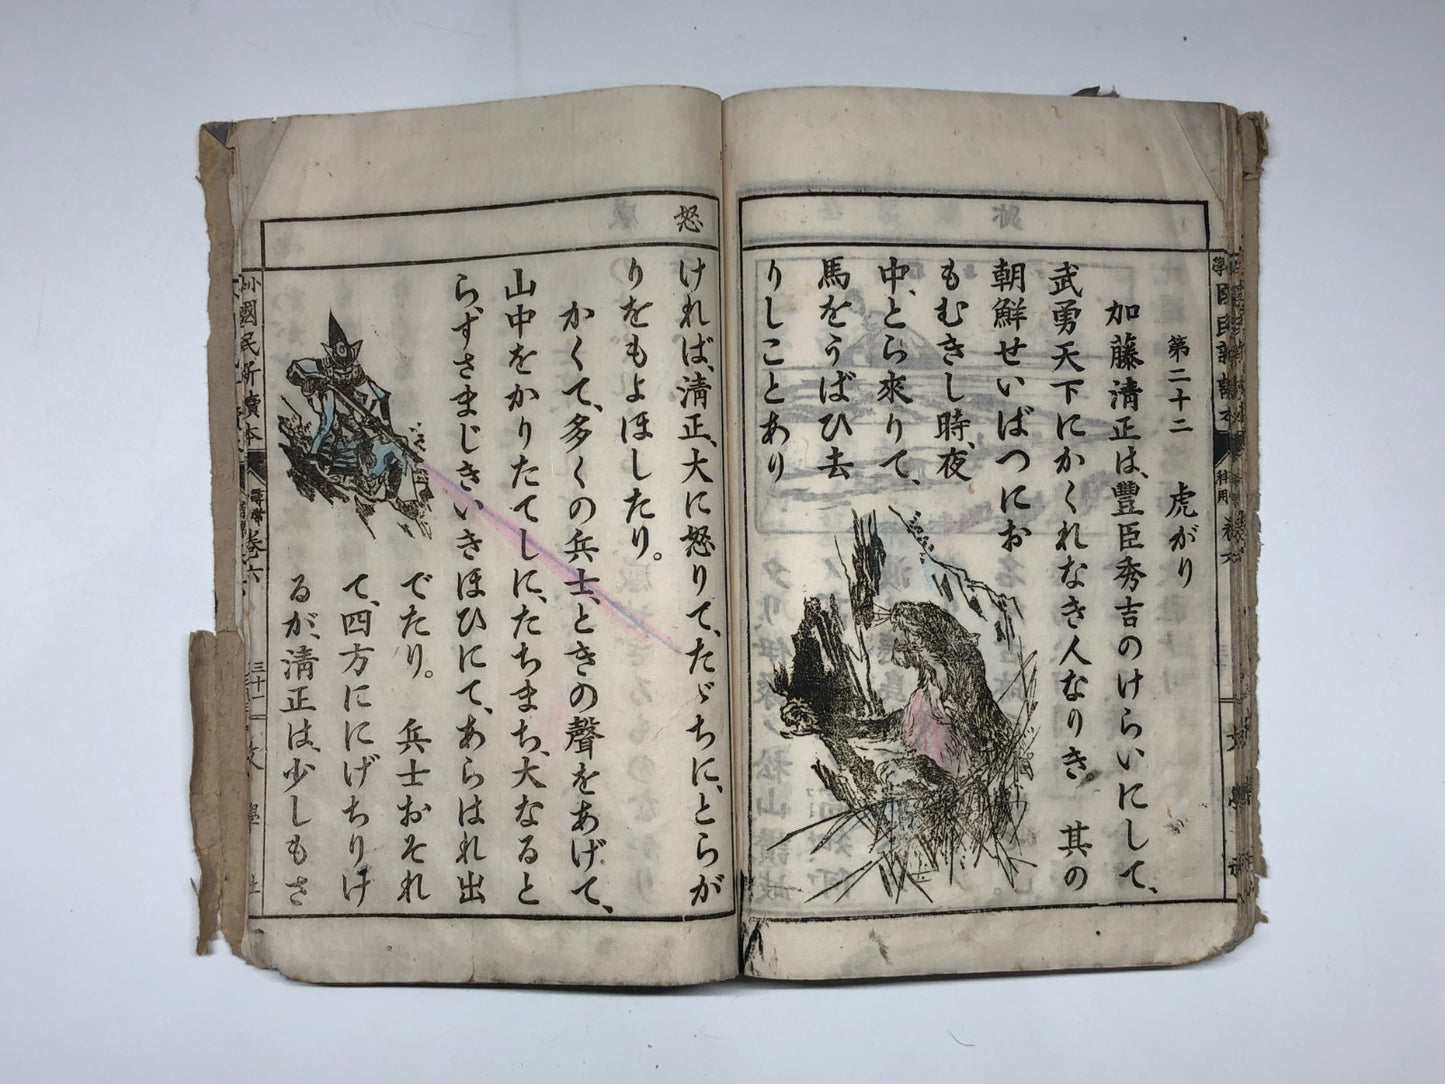 第二十二　虎がり
加藤淸正は、豐臣秀吉のけらいにして、
武勇天下にかくれなき人なりき。其の
朝鮮せいばつにお
もむきし時、夜
中、とら來りて、
馬をうばひ去
りしことあり
怒
ければ、淸正、大に怒りて、たゞちに、とらが
りをもよほしたり。
かくて、多くの兵士、ときの聲をあげて、
山中をかりたてしに、たちまち、大なると
ら、すさまじきいきほひにて、あらはれ出
でたり。兵士おそれ
て、四方ににげちりけ
るが、淸正は、少しもさ
國民新讀本
卷六
三十一
文學社